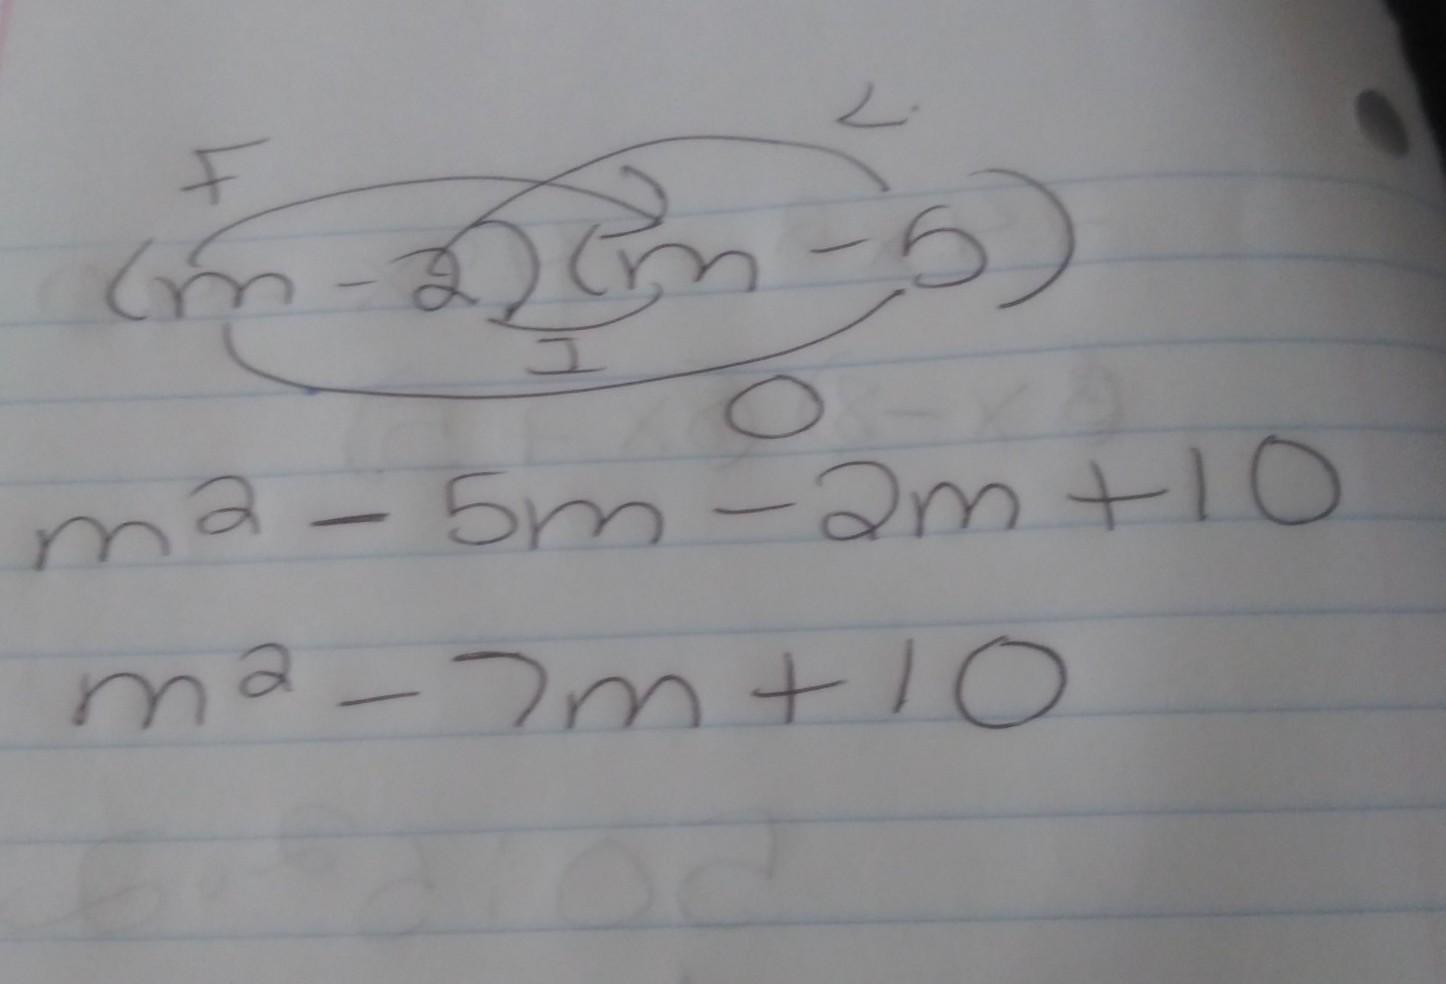 F L
(m - 2)(m - 5)
I
O
m² - 5m - 2m + 10
m² - 7m + 10